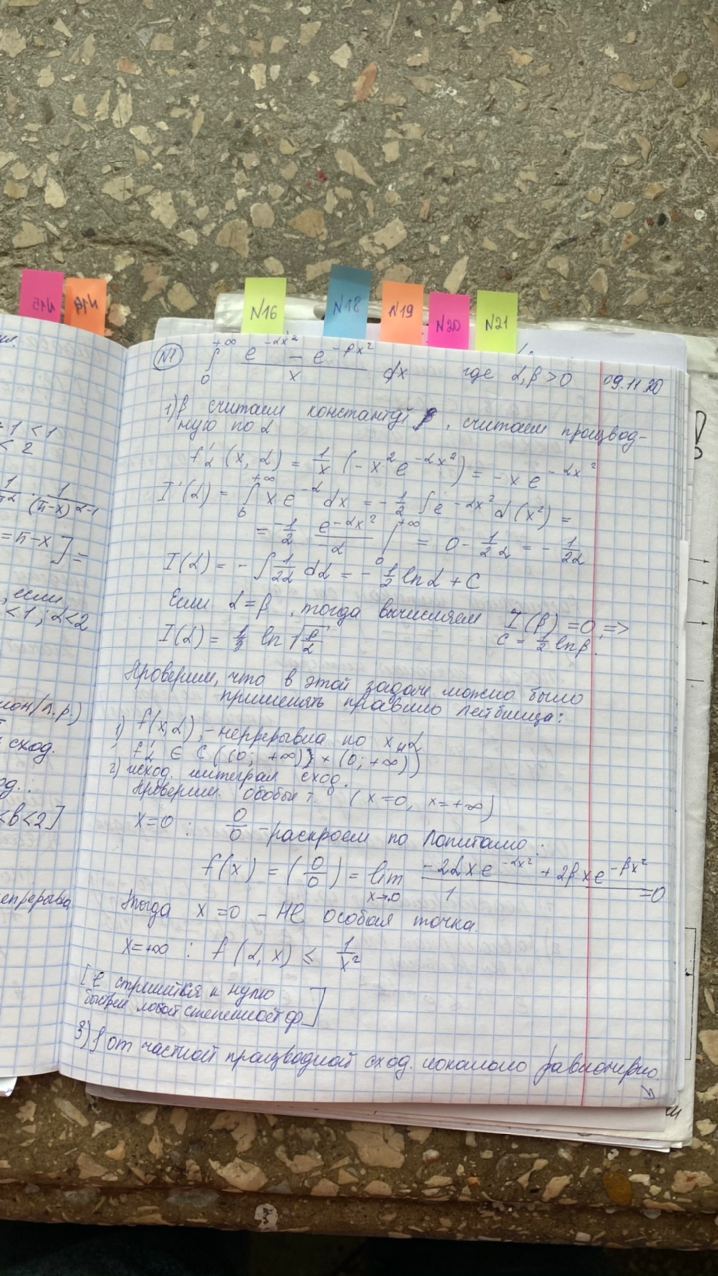 N15
N16
N18
N19
N20
N21
N1 ∫₀^{+∞} (e^{-αx²} - e^{-βx²})/x dx где α,β>0 09.11.20
1) β считаем константой, считаем производ-
ную по α
f'_α (x, α) = 1/x (-x² e^{-αx²}) = -x e^{-αx²}
I'(α) = ∫₀^{+∞} x e^{-α} dx = -1/2 ∫ e^{-αx²} d(x²) =
= -1/2 e^{-αx²}/α |₀^{+∞} = 0 - 1/2α = -1/2α
I(α) = -∫ 1/2α dα = -1/2 ln α + C
Если α=β, тогда вычисляем I(β)=0, =>
C = 1/2 ln β.
I(α) = ln √(β/α)
Проверим, что в этой задаче можно было
применять правило Лейбница:
1) f(x,α) - непрерывна по x и α
f'_α ∈ C((0; +∞) × (0; +∞))
2) исход. интеграл сход.
Проверим особые т. (x=0, x=+∞)
x=0 : 0/0 - раскроем по Лопиталю:
f(x) = (0/0) = lim_{x→0} (-2αx e^{-αx²} + 2βx e^{-βx²})/1 = 0
Тогда x=0 - НЕ особая точка.
x=+∞ : f(α,x) ≤ 1/x²
[e стремится к нулю
быстрее любой степенной ф]
3) ∫ от частной производной сход. локально равномерно
+1<1
<2
1/(π-x)^{α-1}
=π-x]=
, если
<1; α<2
сход.
<b<2]